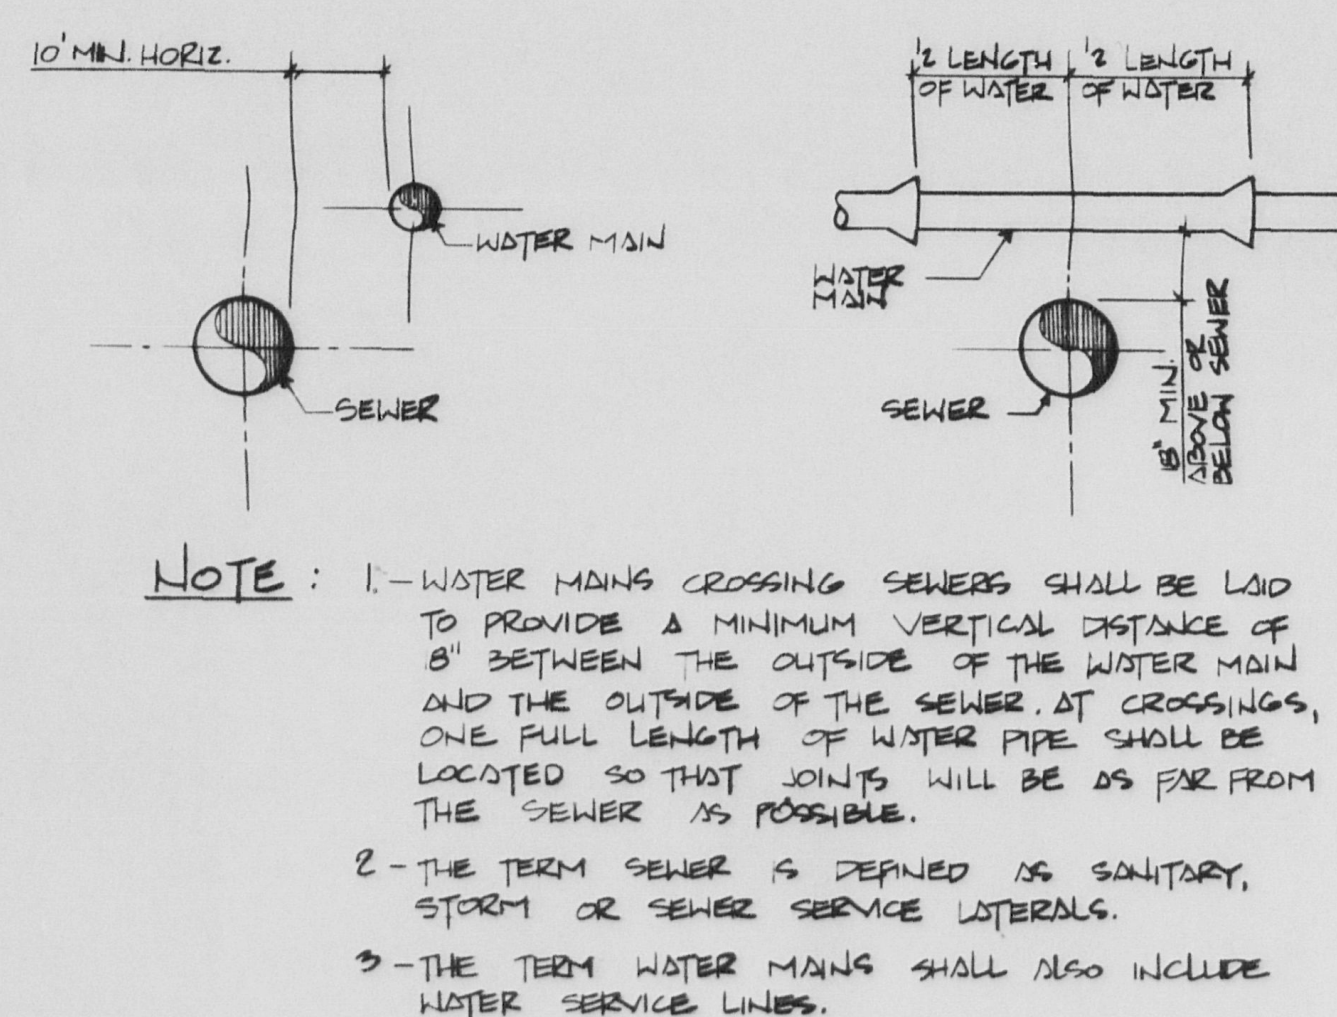 10' MIN. HORIZ.
WATER MAIN
SEWER
1/2 LENGTH
OF WATER
1/2 LENGTH
OF WATER
WATER
MAIN
SEWER
18" MIN.
ABOVE OR
BELOW SEWER
NOTE : 1. - WATER MAINS CROSSING SEWERS SHALL BE LAID
TO PROVIDE A MINIMUM VERTICAL DISTANCE OF
18" BETWEEN THE OUTSIDE OF THE WATER MAIN
AND THE OUTSIDE OF THE SEWER. AT CROSSINGS,
ONE FULL LENGTH OF WATER PIPE SHALL BE
LOCATED SO THAT JOINTS WILL BE AS FAR FROM
THE SEWER AS POSSIBLE.
2 - THE TERM SEWER IS DEFINED AS SANITARY,
STORM OR SEWER SERVICE LATERALS.
3 - THE TERM WATER MAINS SHALL ALSO INCLUDE
WATER SERVICE LINES.